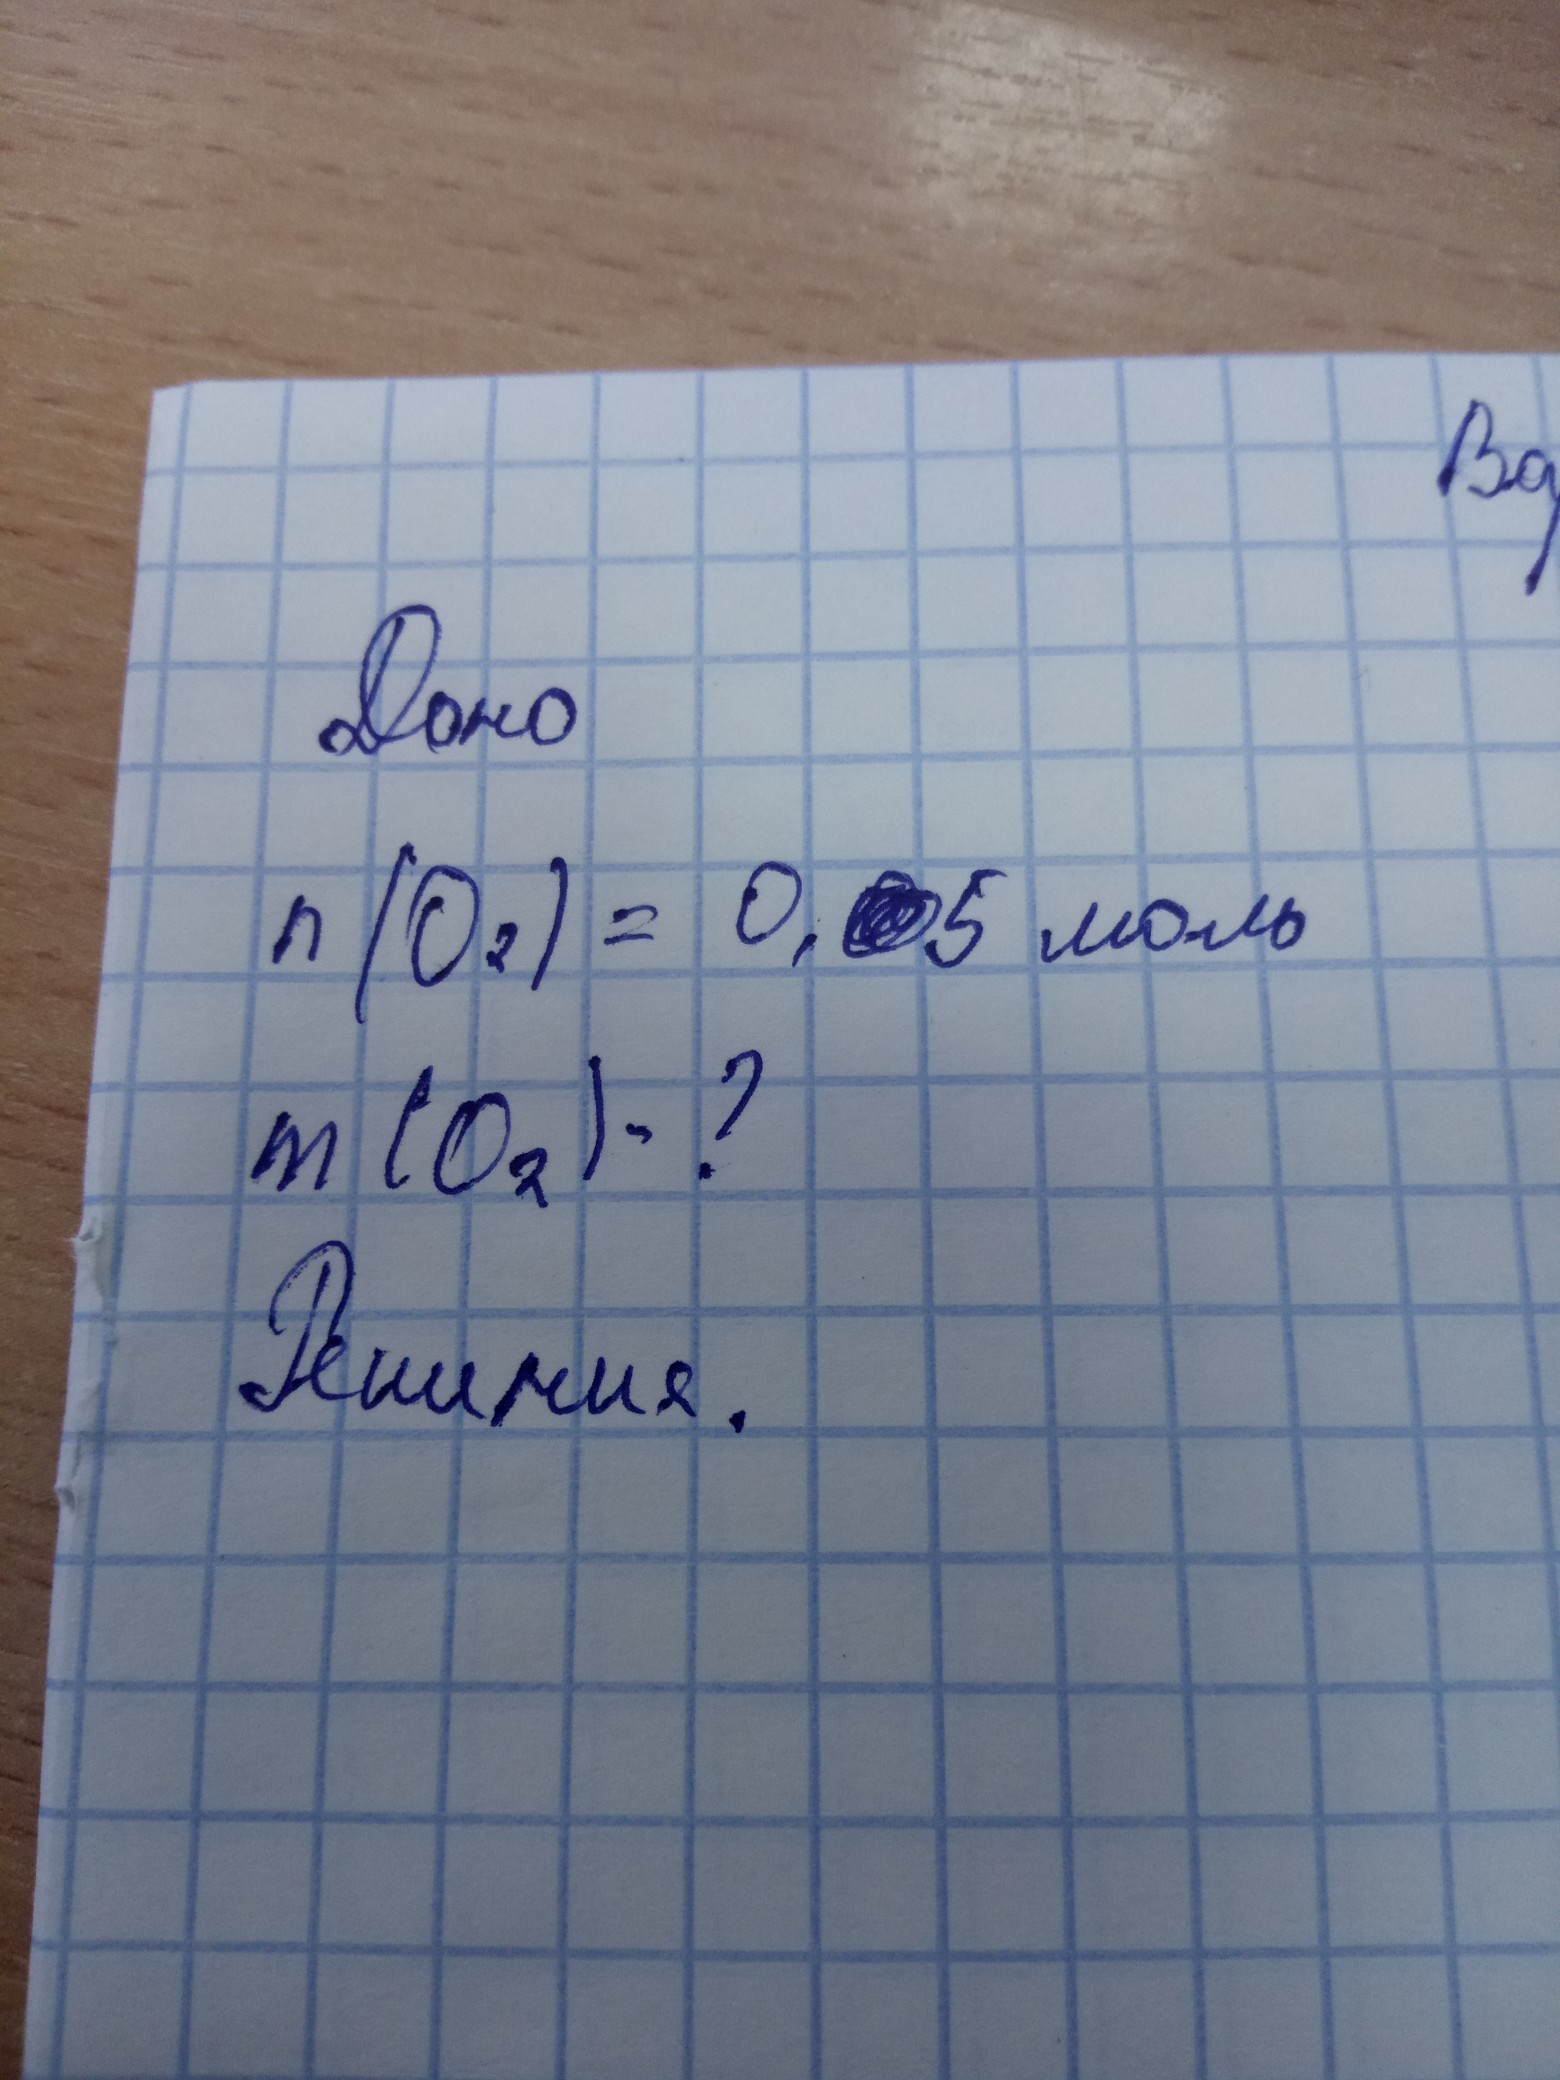 Вар
Дано
n(O₂) = 0,5 моль
m(O₂) - ?
Решиния.